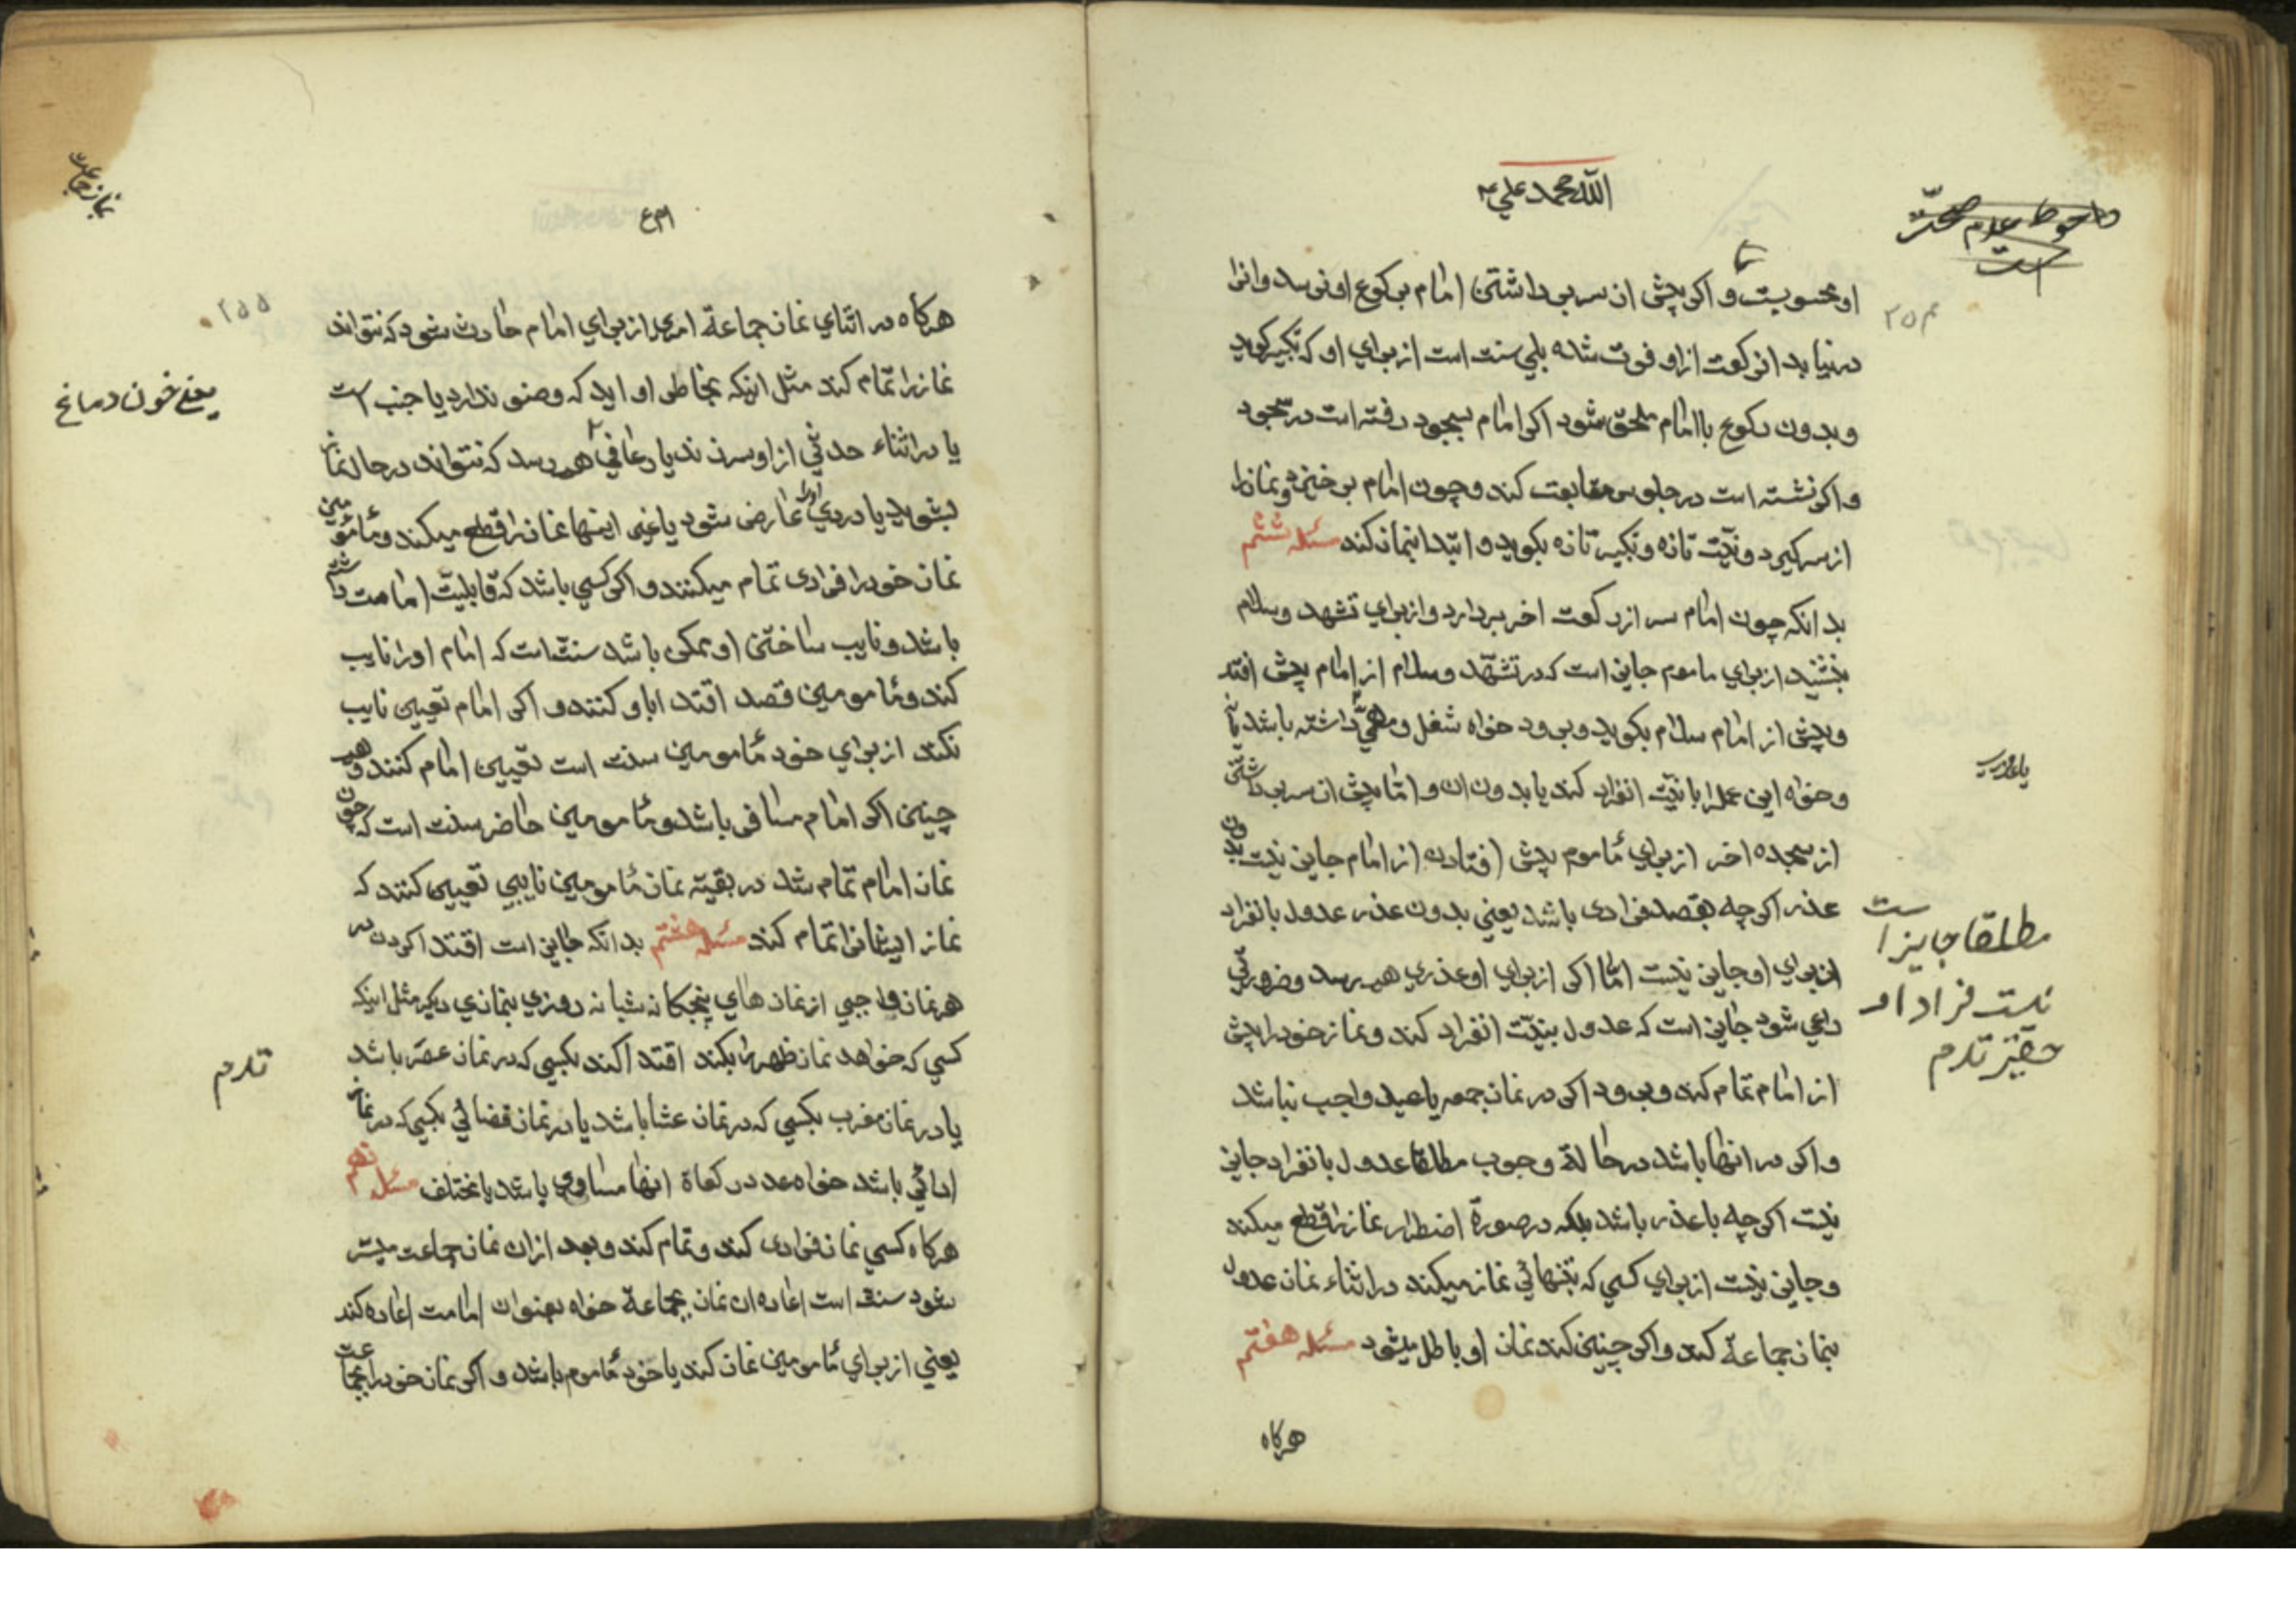 الله محمد علي
او محسوبست و اکر پیش از سر برداشتن امام برکوع او نرسد و انرا
در نیابد ان رکعت از او فوت شده بلی سنت است از برای او که تکبیر کوید
و بدون رکوع با امام ملحق شود اکر امام بسجود رفته است در سجود
و اکر نشسته است در جلوس متابعت کند و چون امام برخیزد نماز را
از سر کیرد و نیّت تازه و تکبیر تازه بکوید و ابتدا بنماز کند مسئله ششم
بدانکه چون امام سر از رکعت اخر بردارد و از برای تشهد و سلام
بنشیند از برای ماموم جایز است که در تشهّد و سلام از امام پیش افتد
و پیش از امام سلام بکوید و برود خواه شغل و مهمّی داشته باشد یا نه
و خواه این عمل را با نیّت انفراد کند یا بدون ان و امّا پیش از سر برداشتن
از سجده اخر از برای مأموم پیش افتادن از امام جایز نیست بدون
عذر اکر چه بقصد فرادی باشد یعنی بدون عذر عدول بانفراد
از برای او جایز نیست امّا اکر از برای او عذری هم رسد و ضرورتی
داعی شود جایز است که عدول بنیّت انفراد کند و نماز خود را پیش
از امام تمام کند و برود اکر در نماز جمعه یا عید واجب نباشد
و اکر در انها باشد در حالة وجوب مطلقا عدول بانفراد جایز
نیست اکر چه با عذر باشد بلکه در صورة اضطرار نماز را قطع میکند
و جایز نیست از برای کسی که بتنهائی نماز میکند در اثناء نماز عدول
بنماز جماعة کند و اکر چنین کند نماز او باطل میشود مسئله هفتم
هرکاه
و احوط عدم صحّت
است
م ۲۵
مطلقا جایز است
نیست فرادا و
حقیر ترم
نماز جماعت
۲۵۵
هرکاه در اثنای نماز جماعة امری از برای امام حادث شود که نتواند
نماز را تمام کند مثل اینکه بخاطر او اید که وضو ندارد یا جنب است
یا در اثناء حدثی از او سر زند یا رعافی هم رسد که نتواند در حال نماز
بشوید یا دردی او را عارض شود یا غیر اینها نماز را قطع میکند و مأمومین
نماز خود را فرادی تمام میکنند و اکر کسی باشد که قابلیّت امامت داشته
باشد و نایب ساختن او ممکن باشد سنّت است که امام او را نایب
کند و مأمومین قصد اقتدا باو کنند و اکر امام تعیین نایب
نکند از برای خود مأمومین سنت است تعیین امام کنند و هم
چنین اکر امام مسافر باشد و مأمومین حاضر سنت است که چون
نماز امام تمام شد در بقیّه نماز مأمومین نایبی تعیین کنند که
نماز ایشانرا تمام کند مسئله هشتم بدانکه جایز است اقتدا کردن در
هر نماز واجبی از نماز های پنجکانه شبانه روزی بنمازی دیکر مثل اینکه
کسی که خواهد نماز ظهر را بکند اقتدا کند بکسی که در نماز عصر باشد
یا در نماز مغرب بکسی که در نماز عشا باشد یا در نماز قضائی بکسی که در نماز
ادائی باشد خواه عدد رکعاة انها مساوی باشد یا مختلف مسئله نهم
هرکاه کسی نماز فرادی کند و تمام کند و بعد از ان نماز جماعت میسّر
شود سنت است اعاده ان نماز بجماعة خواه بعنوان امامت اعاده کند
یعنی از برای مأمومین نماز کند یا خود مأموم باشد و اکر نماز خود را بجماعت
یعنی خون دماغ
ترم